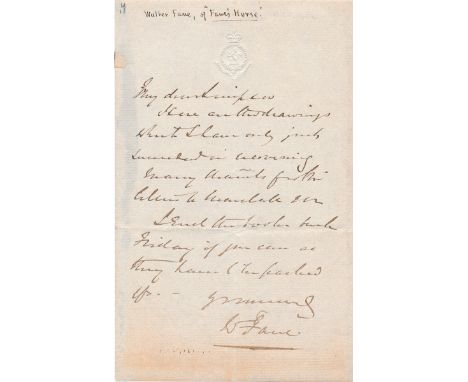 Walter Fane, of 'Fane's Horse'.
My dear Simpson
Here are the drawings
which I have only just
succeeded in recovering
Many thanks for the
send the books back
Friday if you can as
they have to be packed
up. —
W Fane.